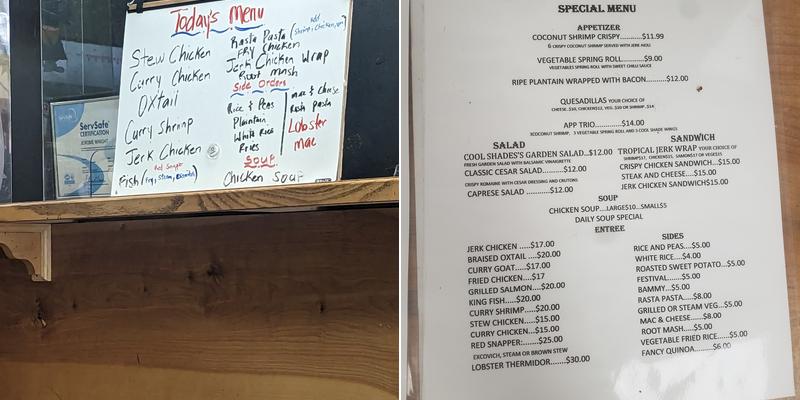 Today's Menu
Stew Chicken
Curry Chicken
Oxtail
Curry Shrimp
Jerk Chicken
Red Snapper
Fish (fry, steam,
Rasta Pasta (add
shrimp, chicken,
Fry Chicken
Jerk Chicken Wrap
Root mash
Side Orders
Rice & Peas
Plantain
White Rice
Fries
Mac & Cheese
Rasta pasta
Lobster
Mac
Soup
Chicken Soup
ServSafe
CERTIFICATION
SPECIAL MENU
APPETIZER
COCONUT SHRIMP CRISPY...........$11.99
6 CRISPY COCONUT SHRIMP SERVED WITH JERK AIOLI
VEGETABLE SPRING ROLL.........$9.00
VEGETABLES SPRING ROLL WITH SWEET CHILLI SAUCE
RIPE PLANTAIN WRAPPED WITH BACON..........$12.00
QUESADILLAS YOUR CHOICE OF
CHEESE..$10, CHICKEN$12, VEG. $10 OR SHRIMP..$14
APP TRIO..........$14.00
3COCONUT SHRIMP, 3 VEGETABLE SPRING ROLL AND 3 COOL SHADE WINGS
SALAD
COOL SHADESS'S GARDEN SALAD...$12.00
FRESH GARDEN SALAD WITH BALSAMIC VINAIGRETTE
CLASSIC CESAR SALAD............$12.00
CRISPY ROMAINE WITH CESAR DRESSING AND CRUTONS
CAPRESE SALAD ............$12.00
SANDWICH
TROPICAL JERK WRAP YOUR CHOICE OF
SHRIMP$17, CHICKEN$15, SAMON$17 OR VEGIE$15
CRISPY CHICKEN SANDWICH....$15.00
STEAK AND CHEESE....$15.00
JERK CHICKEN SANDWICH$15.00
SOUP
CHICKEN SOUP....LARGE$10...SMALL$5
DAILY SOUP SPECIAL
ENTREE
JERK CHICKEN .....$17.00
BRAISED OXTAIL ...$20.00
CURRY GOAT......$17.00
FRIED CHICKEN....$17
GRILLED SALMON....$20.00
KING FISH.....$20.00
CURRY SHRIMP....$20.00
STEW CHICKEN....$15.00
CURRY CHICKEN....$15.00
RED SNAPPER:.......$25.00
EXCOVICH, STEAM OR BROWN STEW
LOBSTER THERMIDOR.......$30.00
SIDES
RICE AND PEAS....$5.00
WHITE RICE....$4.00
ROASTED SWEET POTATO...$5.00
FESTIVAL.....$5.00
BAMMY.....$5.00
RASTA PASTA....$8.00
GRILLED OR STEAM VEG...$5.00
MAC & CHEESE.....$8.00
ROOT MASH....$5.00
VEGETABLE FRIED RICE.....$5.00
FANCY QUINOA.....$6.00